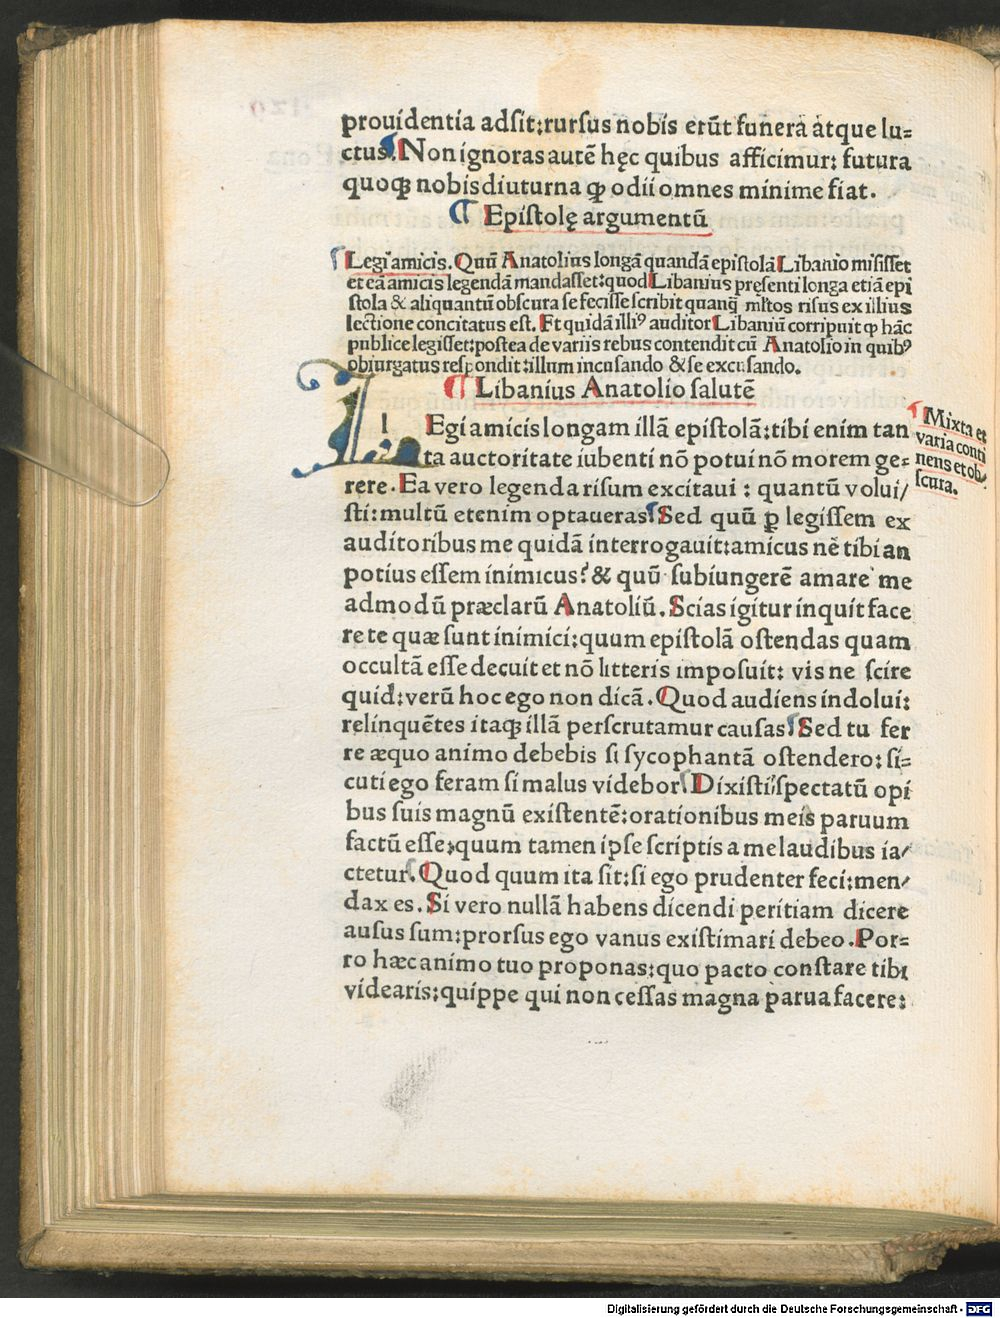 prouidentia adsit:rursus nobis erūt funera atque lu=
ctus. Non ignoras autē hęc quibus afficimur: futura
quoqꝫ nobis diuturna ꝙ odii omnes minime fiat.
¶ Epistolę argumentū
Legi amicis. Quū Anatolius longā quandā epistolā Libanio misisset
et eā amicis legendā mandasset:quod Libanius pręsenti longa etiā epi
stola & aliquantū obscura se fecisse scribit quanq̄ ml̄tos risus ex illius
lectione concitatus est. Et quidā illiꝰ auditor Libaniū corripuit ꝙ hāc
publice legisset:postea de variis rebus contendit cū Anatolio in quibꝰ
obiurgatus respondit:illum incusando & se excusando.
¶ Libanius Anatolio salutē
lEgi amicis longam illā epistolā:tibi enim tan
ta auctoritate iubenti nō potui nō morem ge=
rere. Ea vero legenda risum excitaui : quantū volui/
sti:multū etenim optaueras. Sed quū ꝑ legissem ex
auditoribus me quidā interrogauit:amicus nē tibi an
potius essem inimicus? & quū subiungerē amare me
admodū præclarū Anatoliū. Scias igitur inquit face
re te quæ sunt inimici:quum epistolā ostendas quam
occultā esse decuit et nō litteris imposuit: vis ne scire
quid:verū hoc ego non dicā. Quod audiens indolui:
relinquētes itaqꝫ illā perscrutamur causas. Sed tu fer
re æquo animo debebis si sycophantā ostendero: si=
cuti ego feram si malus videbor. Dixisti spectatū opi
bus suis magnū existentē:orationibus meis paruum
factū esse:quum tamen ipse scriptis a me laudibus ia/
ctetur. Quod quum ita sit:si ego prudenter feci:men/
dax es. Si vero nullā habens dicendi peritiam dicere
ausus sum:prorsus ego vanus existimari debeo. Por=
ro hæc animo tuo proponas:quo pacto constare tibi
videaris:quippe qui non cessas magna parua facere:
Mixta et
varia conti
nens et ob/
scura.
Digitalisierung gefördert durch die Deutsche Forschungsgemeinschaft - DFG